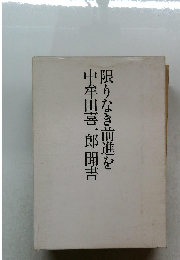 限りなき前進を
中牟田喜一郎聞書